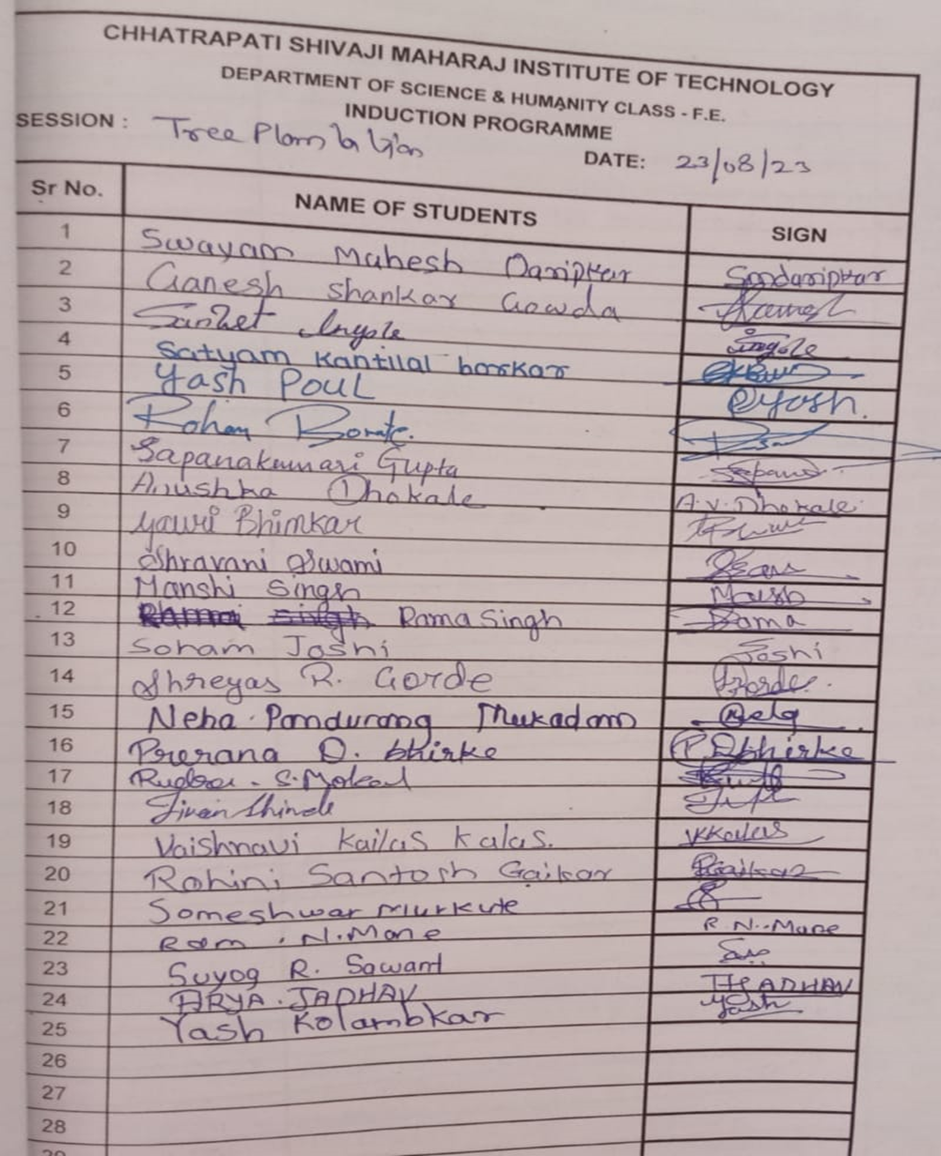 CHHATRAPATI SHIVAJI MAHARAJ INSTITUTE OF TECHNOLOGY
DEPARTMENT OF SCIENCE & HUMANITY CLASS - F.E.
INDUCTION PROGRAMME
SESSION : Tree Plantation DATE: 23/08/23
Sr No. NAME OF STUDENTS SIGN
1 Swayam Mahesh Daripkar
2 Ganesh Shankar Gowda
3 Sanket Ingole Ingole
4 Satyam Kantilal borkar
5 Yash POUL Yosh.
6 Rohan Borate.
7 Sapanakumari Gupta
8 Anushka Dhokale A.V.Dhokale
9 Gauri Bhimkar
10 Shravani Swami
11 Manshi Singh
12 Rama Singh Rama
13 Soham Joshi Joshi
14 Shreyas R. Gorde Gorde
15 Neha Pandurang Mukadam
16 Prerana D. bhirke PDbhirke
17 S. Mokal
18 Jivan Shinde
19 Vaishnavi Kailas Kalas. VKKalas
20 Rohini Santosh Gaikar
21 Someshwar Murkute
22 Ram . N. Mane R.N. Mane
23 Suyog R. Sawant
24 ARYA . JADHAV JADHAV
25 Yash Kolambkar Yash
26
27
28